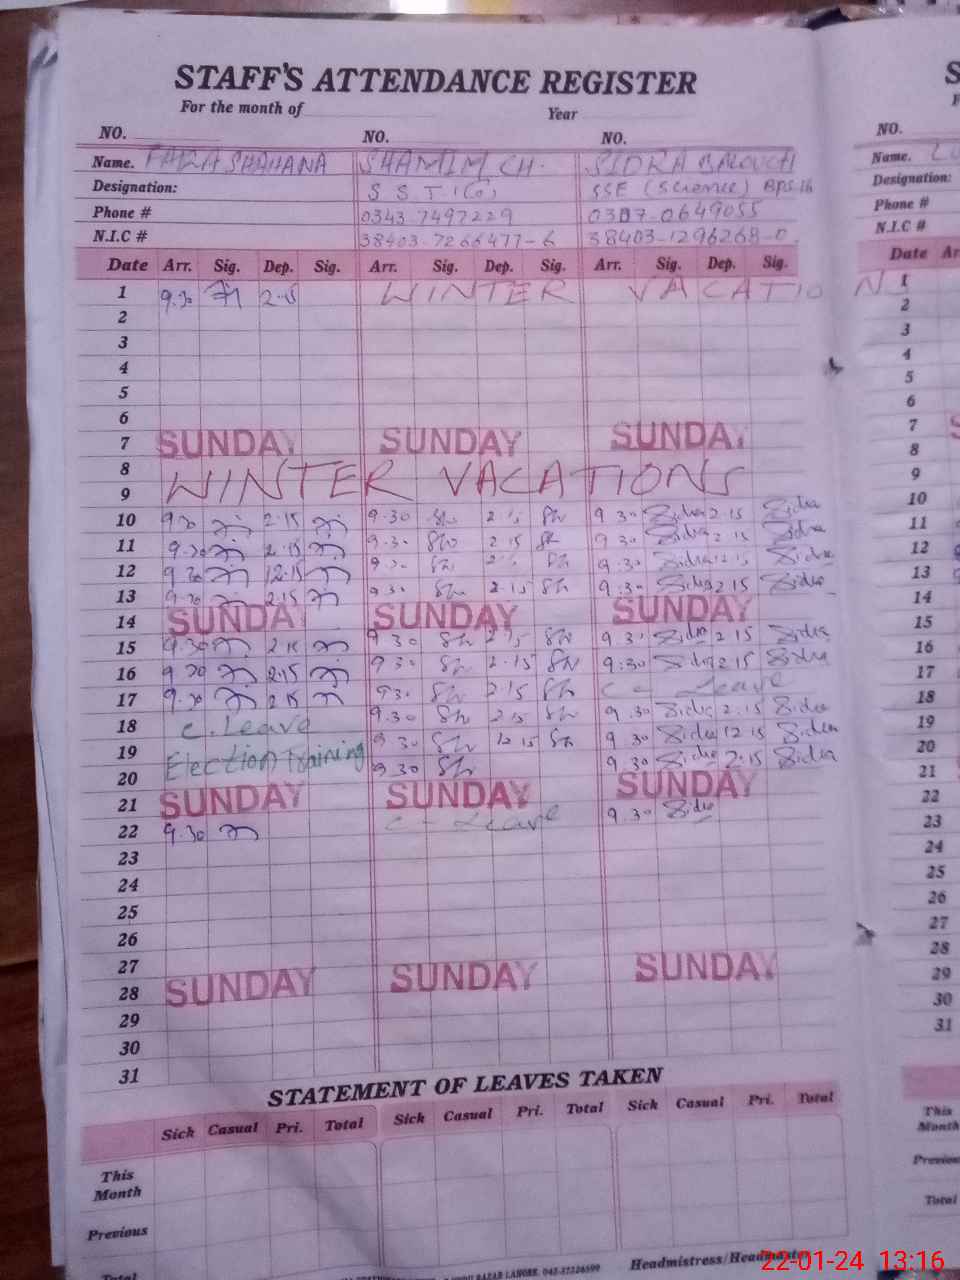 STAFF'S ATTENDANCE REGISTER
For the month of Year
NO. NO. NO. NO.
Name. SHAHANA SHAMIM CH. SIDRA BALOUCH Name.
Designation: S S.T. SSE (Science) BPS.16 Designation:
Phone # 0343-7497229 0307-0649055 Phone #
N.I.C # 38403-7266477-6 38403-1296268-0 N.I.C #
Date Arr. Sig. Dep. Sig. Arr. Sig. Dep. Sig. Arr. Sig. Dep. Sig. Date
1 9.30 2.15 WINTER VACATION 1
2 2
3 3
4 4
5 5
6 6
7 SUNDAY SUNDAY SUNDAY 7
8 8
9 WINTER VACATIONS 9
10 9.30 2.15 9.30 Sh 2.15 Sh 9.30 Sidra 2.15 Sidra 10
11 9.30 2.15 9.30 Sh 2.15 Sh 9.30 Sidra 2.15 Sidra 11
12 9.30 12.15 9.30 Sh Sh 9.30 Sidra 12.15 Sidra 12
13 9.30 2.15 9.30 Sh 2.15 Sh 9.30 Sidra 2.15 Sidra 13
14 SUNDAY SUNDAY SUNDAY 14
15 9.30 2.15 9.30 Sh 2.15 Sh 9.30 Sidra 2.15 Sidra 15
16 9.30 2.15 9.30 Sh 2.15 Sh 9.30 Sidra 2.15 Sidra 16
17 9.30 2.15 9.30 Sh 2.15 Sh C - Leave 17
18 C. Leave 9.30 Sh 2.15 Sh 9.30 Sidra 2.15 Sidra 18
19 Election Training 9.30 Sh 12.15 Sh 9.30 Sidra 12.15 Sidra 19
20 9.30 Sh 9.30 Sidra 2.15 Sidra 20
21 SUNDAY SUNDAY SUNDAY 21
22 9.30 C - Leave 9.30 Sidra 22
23 23
24 24
25 25
26 26
27 27
28 SUNDAY SUNDAY SUNDAY 28
29 29
30 30
31 31
STATEMENT OF LEAVES TAKEN
Sick Casual Pri. Total Sick Casual Pri. Total Sick Casual Pri. Total
This Month This Month
Previous
Total Total
BAZAR LAHORE. Headmistress/Headmaster
22-01-24 13:16